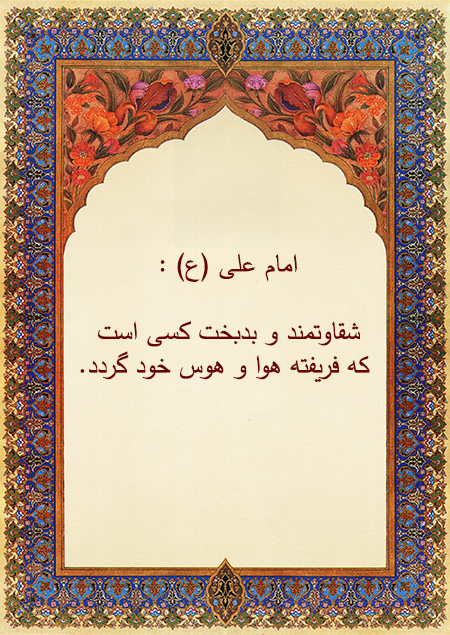 امام علی (ع) :
شقاوتمند و بدبخت کسی است
که فریفته هوا و هوس خود گردد.